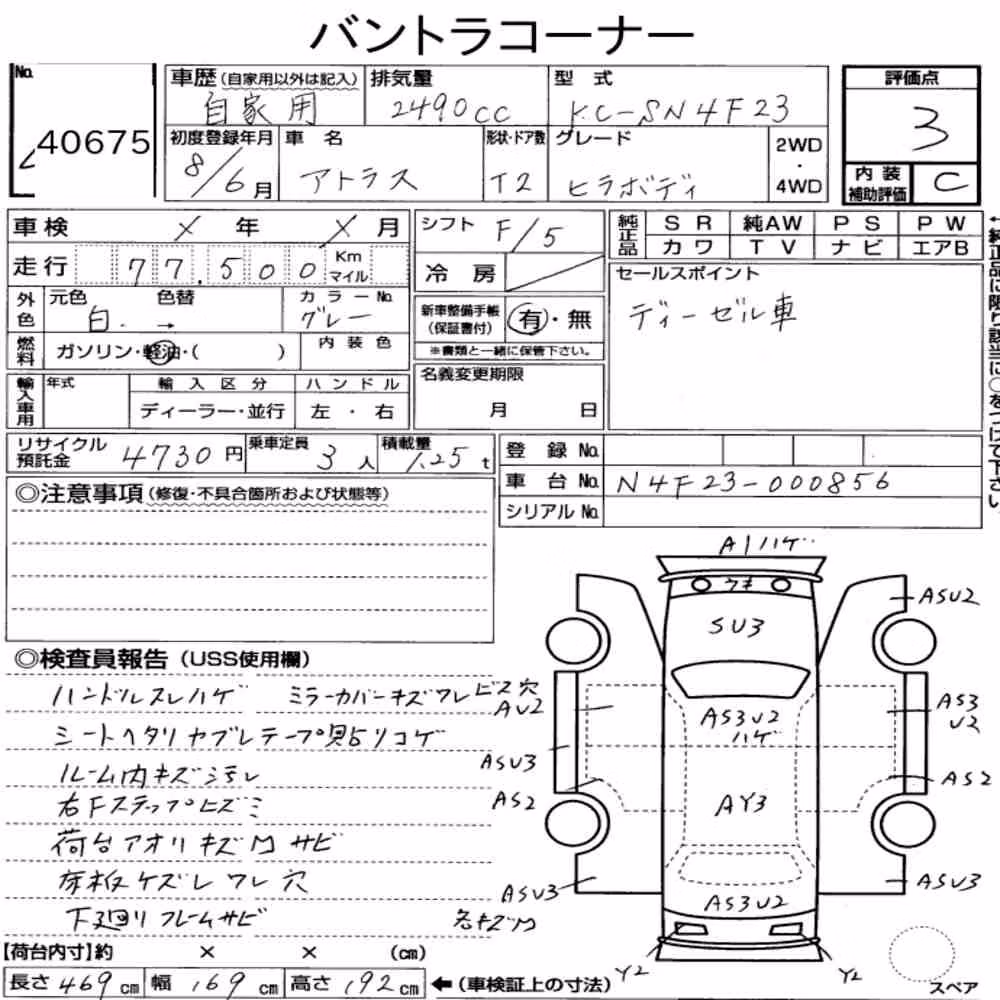 バントラコーナー
No. 40675
車歴(自家用以外は記入) 自家用
排気量 2490cc
型式 KC-SN4F23
評価点 3
初度登録年月 8/6月
車名 アトラス
形状・ドア数 T2
グレード ヒラボディ
2WD・4WD
内装補助評価 C
車検 X 年 X 月
シフト F/5
純正品 SR 純AW PS PW
カワ TV ナビ エアB
走行 77,500 Km マイル
冷房
セールスポイント
ディーゼル車
外色 元色 白. 色替 → カラーNo. グレー
新車整備手帳(保証書付) 有・無
※書類と一緒に保管下さい。
燃料 ガソリン・軽油・( ) 内装色
名義変更期限 月 日
輸入車用 年式 輸入区分 ハンドル
ディーラー・並行 左・右
←純正品に限り該当に○をつけて下さい。
リサイクル預託金 4730円
乗車定員 3人
積載量 1.25t
登録No.
車台No. N4F23-000856
シリアルNo.
◎注意事項(修復・不具合箇所および状態等)
◎検査員報告(USS使用欄)
ハンドルスレハゲ ミラーカバーキズワレビス穴
シートヘタリヤブレテープ貼リコゲ
ルーム内キズ汚レ
右Fステップヒズミ
荷台アオリキズMサビ
床板ケズレワレ穴
下廻リフレームサビ 各キズM
A1ハゲ
ウキ
SU3
ASU2
AU2
AS3U2
ハゲ
AS3
U2
ASU3
AS2
AY3
AS2
ASU3
AS3U2
ASU3
Y2
Y2
スペア
【荷台内寸】約 × × (cm)
長さ469cm 幅169cm 高さ192cm ←(車検証上の寸法)